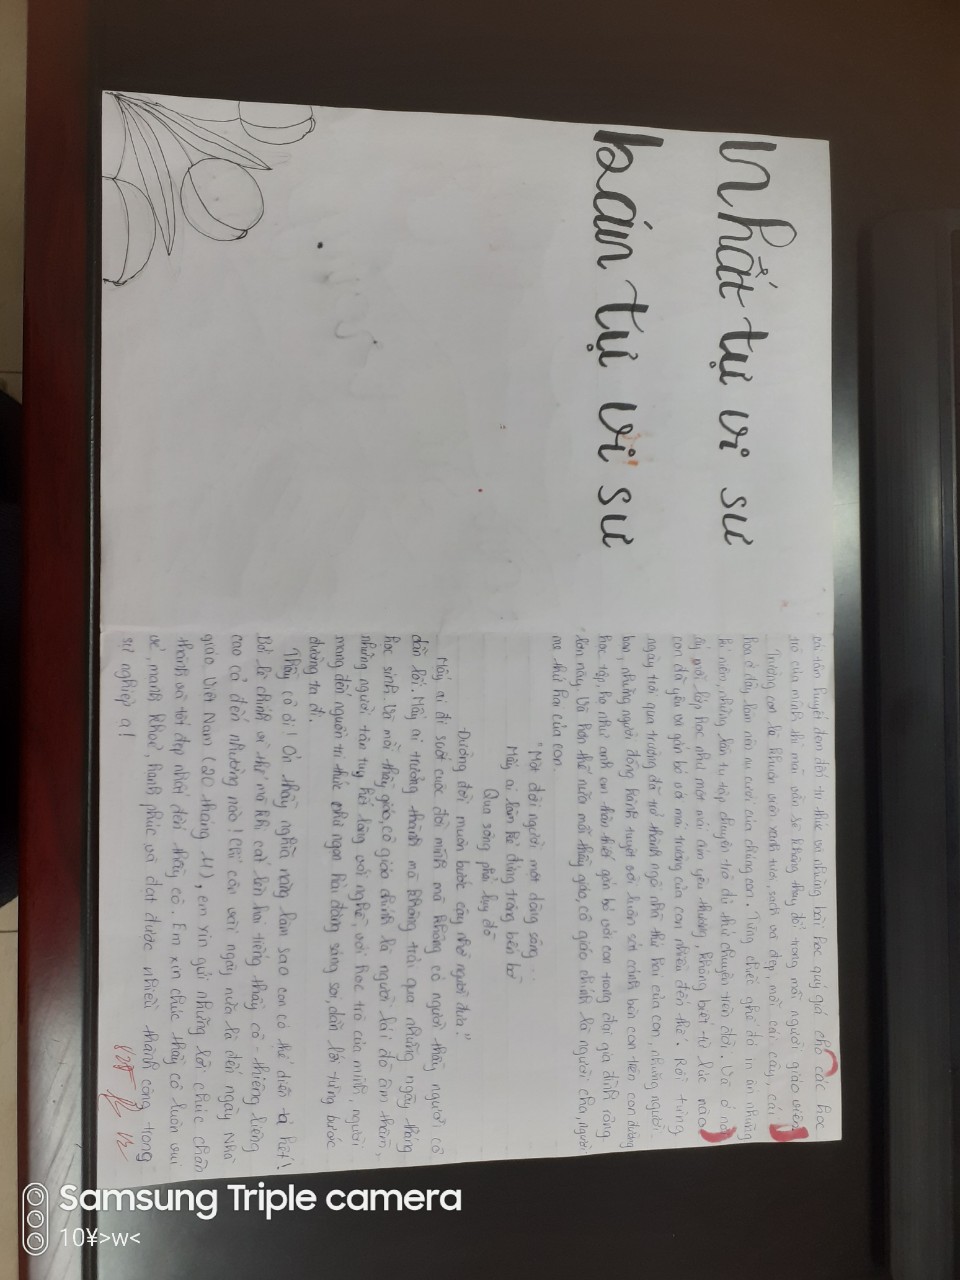 Nhất tự vi sư
bán tự vi sư
cái tâm huyết đem đến tri thức và những bài học quý giá cho các học
trò của mình thì mãi vẫn sẽ không thay đổi trong mỗi người giáo viên.
Trường con là khuôn viên xanh tươi, sạch và đẹp, mỗi cái cây, cái
hoa ở đây làm nên nụ cười của chúng con. Từng chiếc ghế đá in ấn những
kỉ niệm, những lần tụ tập chuyện trò đủ thứ chuyện trên đời. Và ở nơi
ấy mỗi lớp học như một mái ấm yêu thương, không biết từ lúc nào
con đã yêu và gắn bó với mái trường của con nhiều đến thế. Rồi từng
ngày trôi qua trường đã trở thành ngôi nhà thứ hai của con, những người
bạn, những người đồng hành tuyệt vời luôn sát cánh bên con trên con đường
học tập, họ như anh em thân thiết gắn bó với con trong đại gia đình rộng
lớn này. Và hơn thế nữa mỗi thầy giáo, cô giáo chính là người cha, người
mẹ thứ hai của con.
"Một đời người một dòng sông...
Mấy ai làm kẻ đứng trông bến bờ
Qua sông phải lụy đò
Đường đời muôn bước cậy nhờ người đưa."
Mấy ai đi suốt cuộc đời mình mà không có người thầy người cô
dẫn lối. Mấy ai trưởng thành mà không trải qua những ngày tháng
học sinh. Và mỗi thầy giáo, cô giáo chính là người lái đò âm thầm,
những người tận tụy hết lòng với nghề, với học trò của mình, người
mang đến nguồn tri thức như ngọn hải đăng sáng soi, dẫn lối từng bước
đường ta đi.
Thầy cô ơi! Ơn thầy nghĩa nặng làm sao con có thể diễn tả hết!
Bởi lẽ chính vì thế mà khi cất lên hai tiếng thầy cô thiêng liêng
cao cả đến nhường nào! Chỉ còn vài ngày nữa là đến ngày Nhà
giáo Việt Nam (20 tháng 11), em xin gửi những lời chúc chân
thành và tốt đẹp nhất đến thầy cô. Em xin chúc thầy cô luôn vui
vẻ, mạnh khoẻ, hạnh phúc và đạt được nhiều thành công trong
sự nghiệp ạ!
Samsung Triple camera
10¥>w<